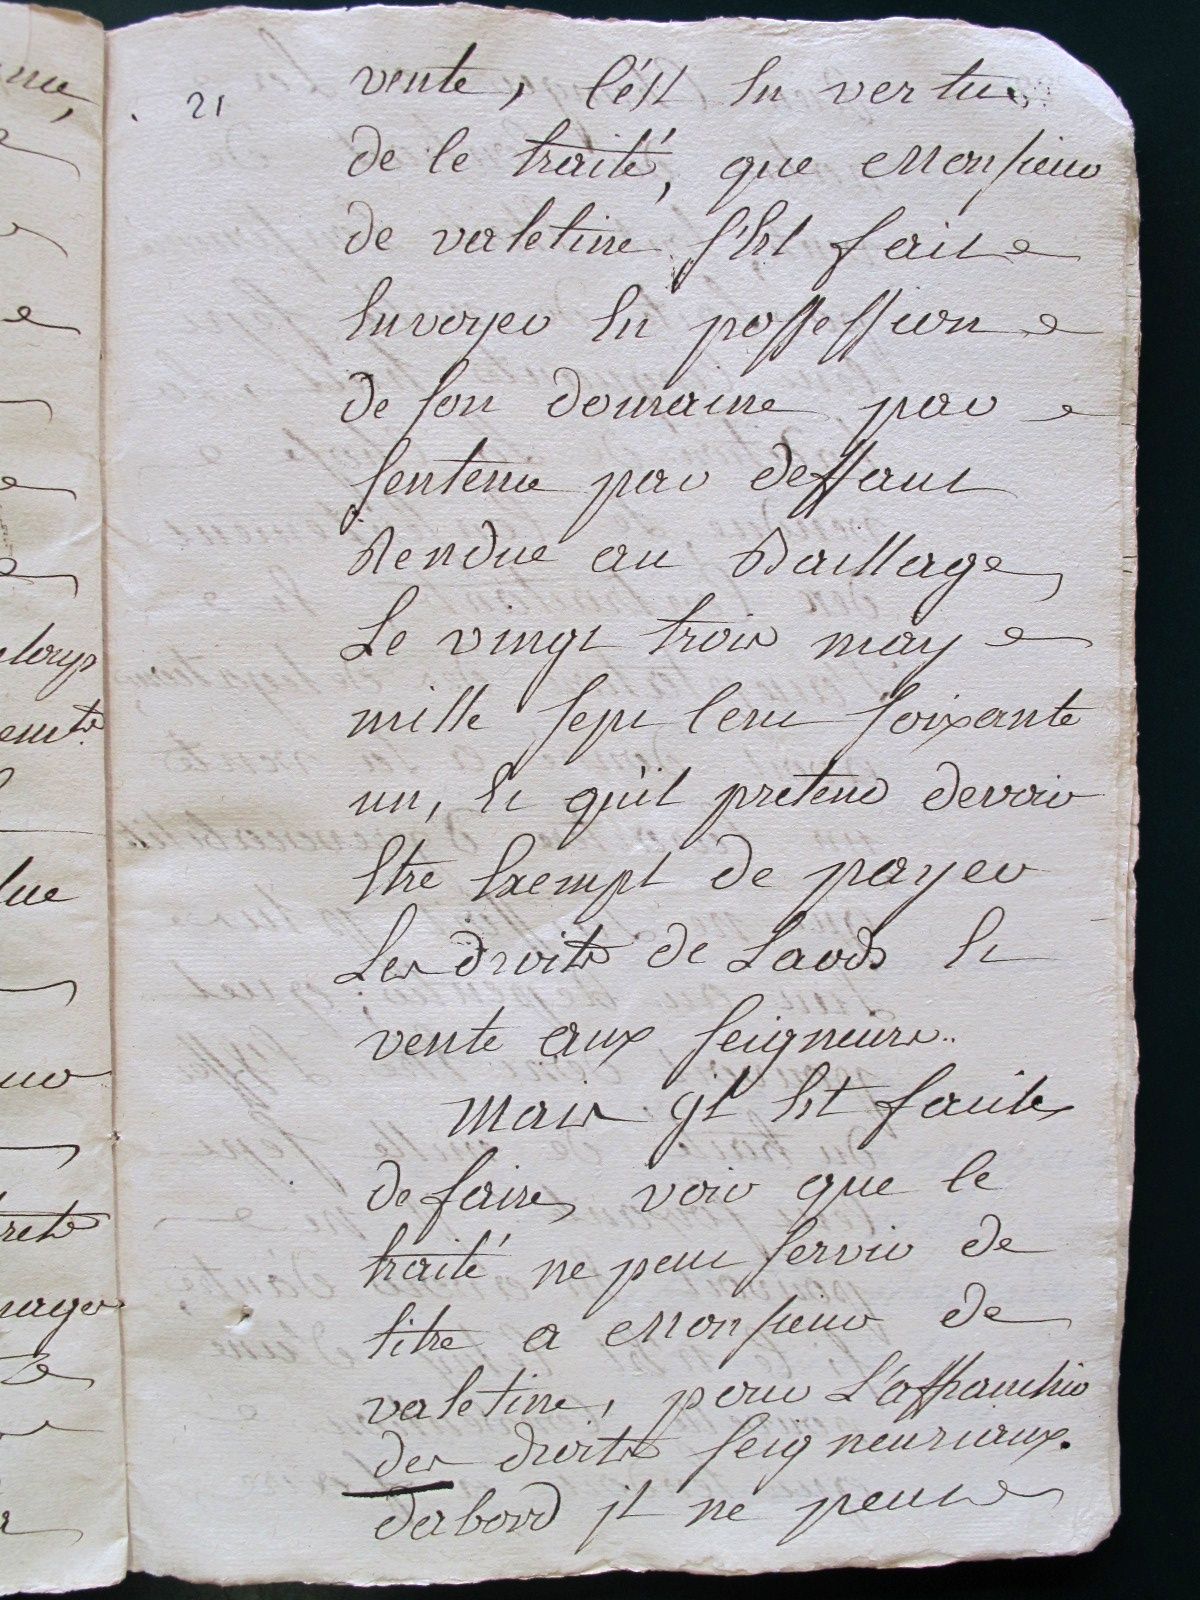 21
vente, c'est en vertu
de ce traité, que Monsieur
de valetine s'est fait
envoyer en possession
de son domaine par
sentence par deffaut
Rendue au Bailliage
Le vingt trois may
mille sept cent soixante
un, et qu'il pretend devoir
etre exempt de payer
Les droits de Laods et
vente aux seigneurs..
Mais il est facile
de faire voir que ce
traité ne peut servir de
titre a Monsieur de
valetine, pour L'affranchir
des droits seigneuriaux.
dabord il ne peut